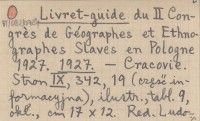 Livret-guide du II Con-
grès de Géographes et Ethno-
graphes Slaves en Pologne
1927. 1927. — Cracovie.
Stron IX, 342, 19 (część in-
formacyjna), ilustr., tabl. 9,
okł., cm 17 x 12. Red. Ludo-